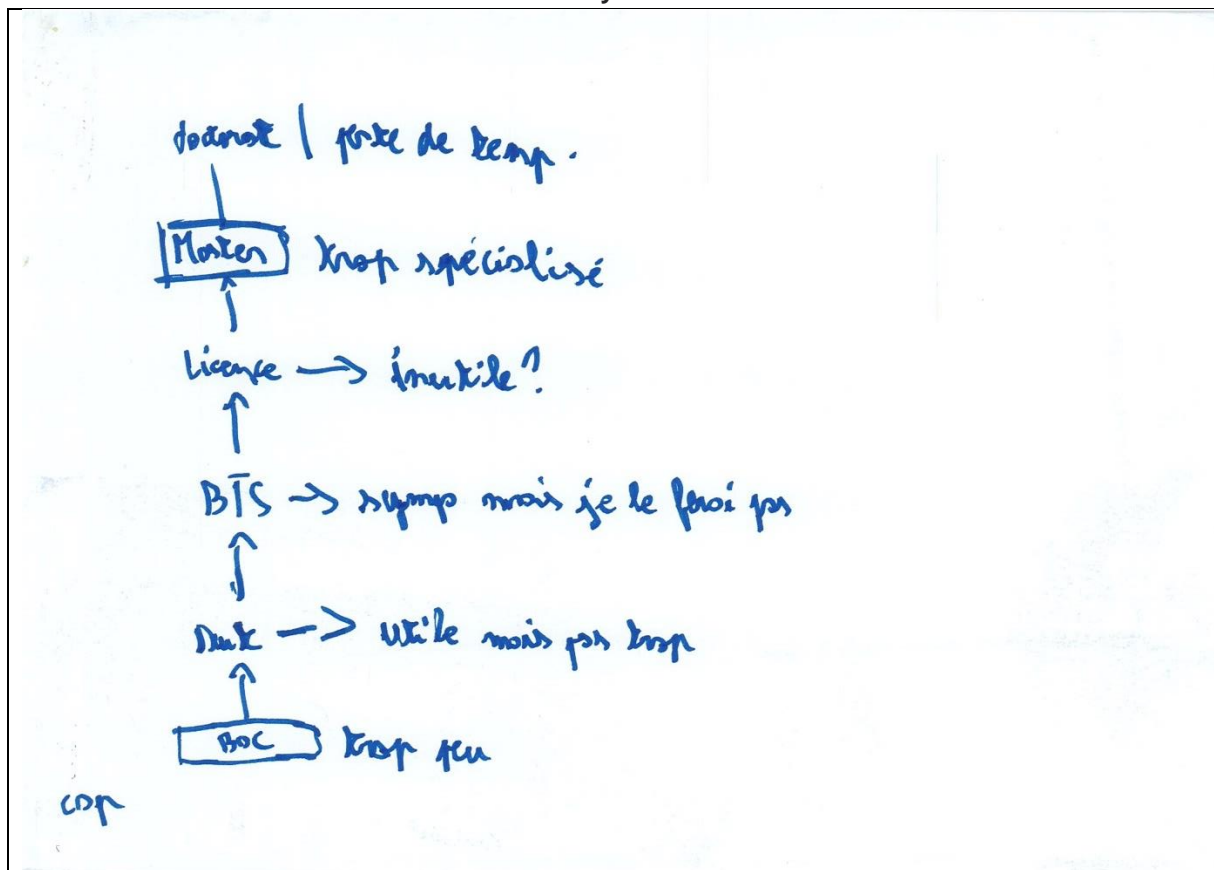 doctorat | perte de temp.
Master trop spécialisé
Licence → inutile?
BTS → symp mais je le ferai pas
Dut → utile mais pas trop
BAC trop peu
cap